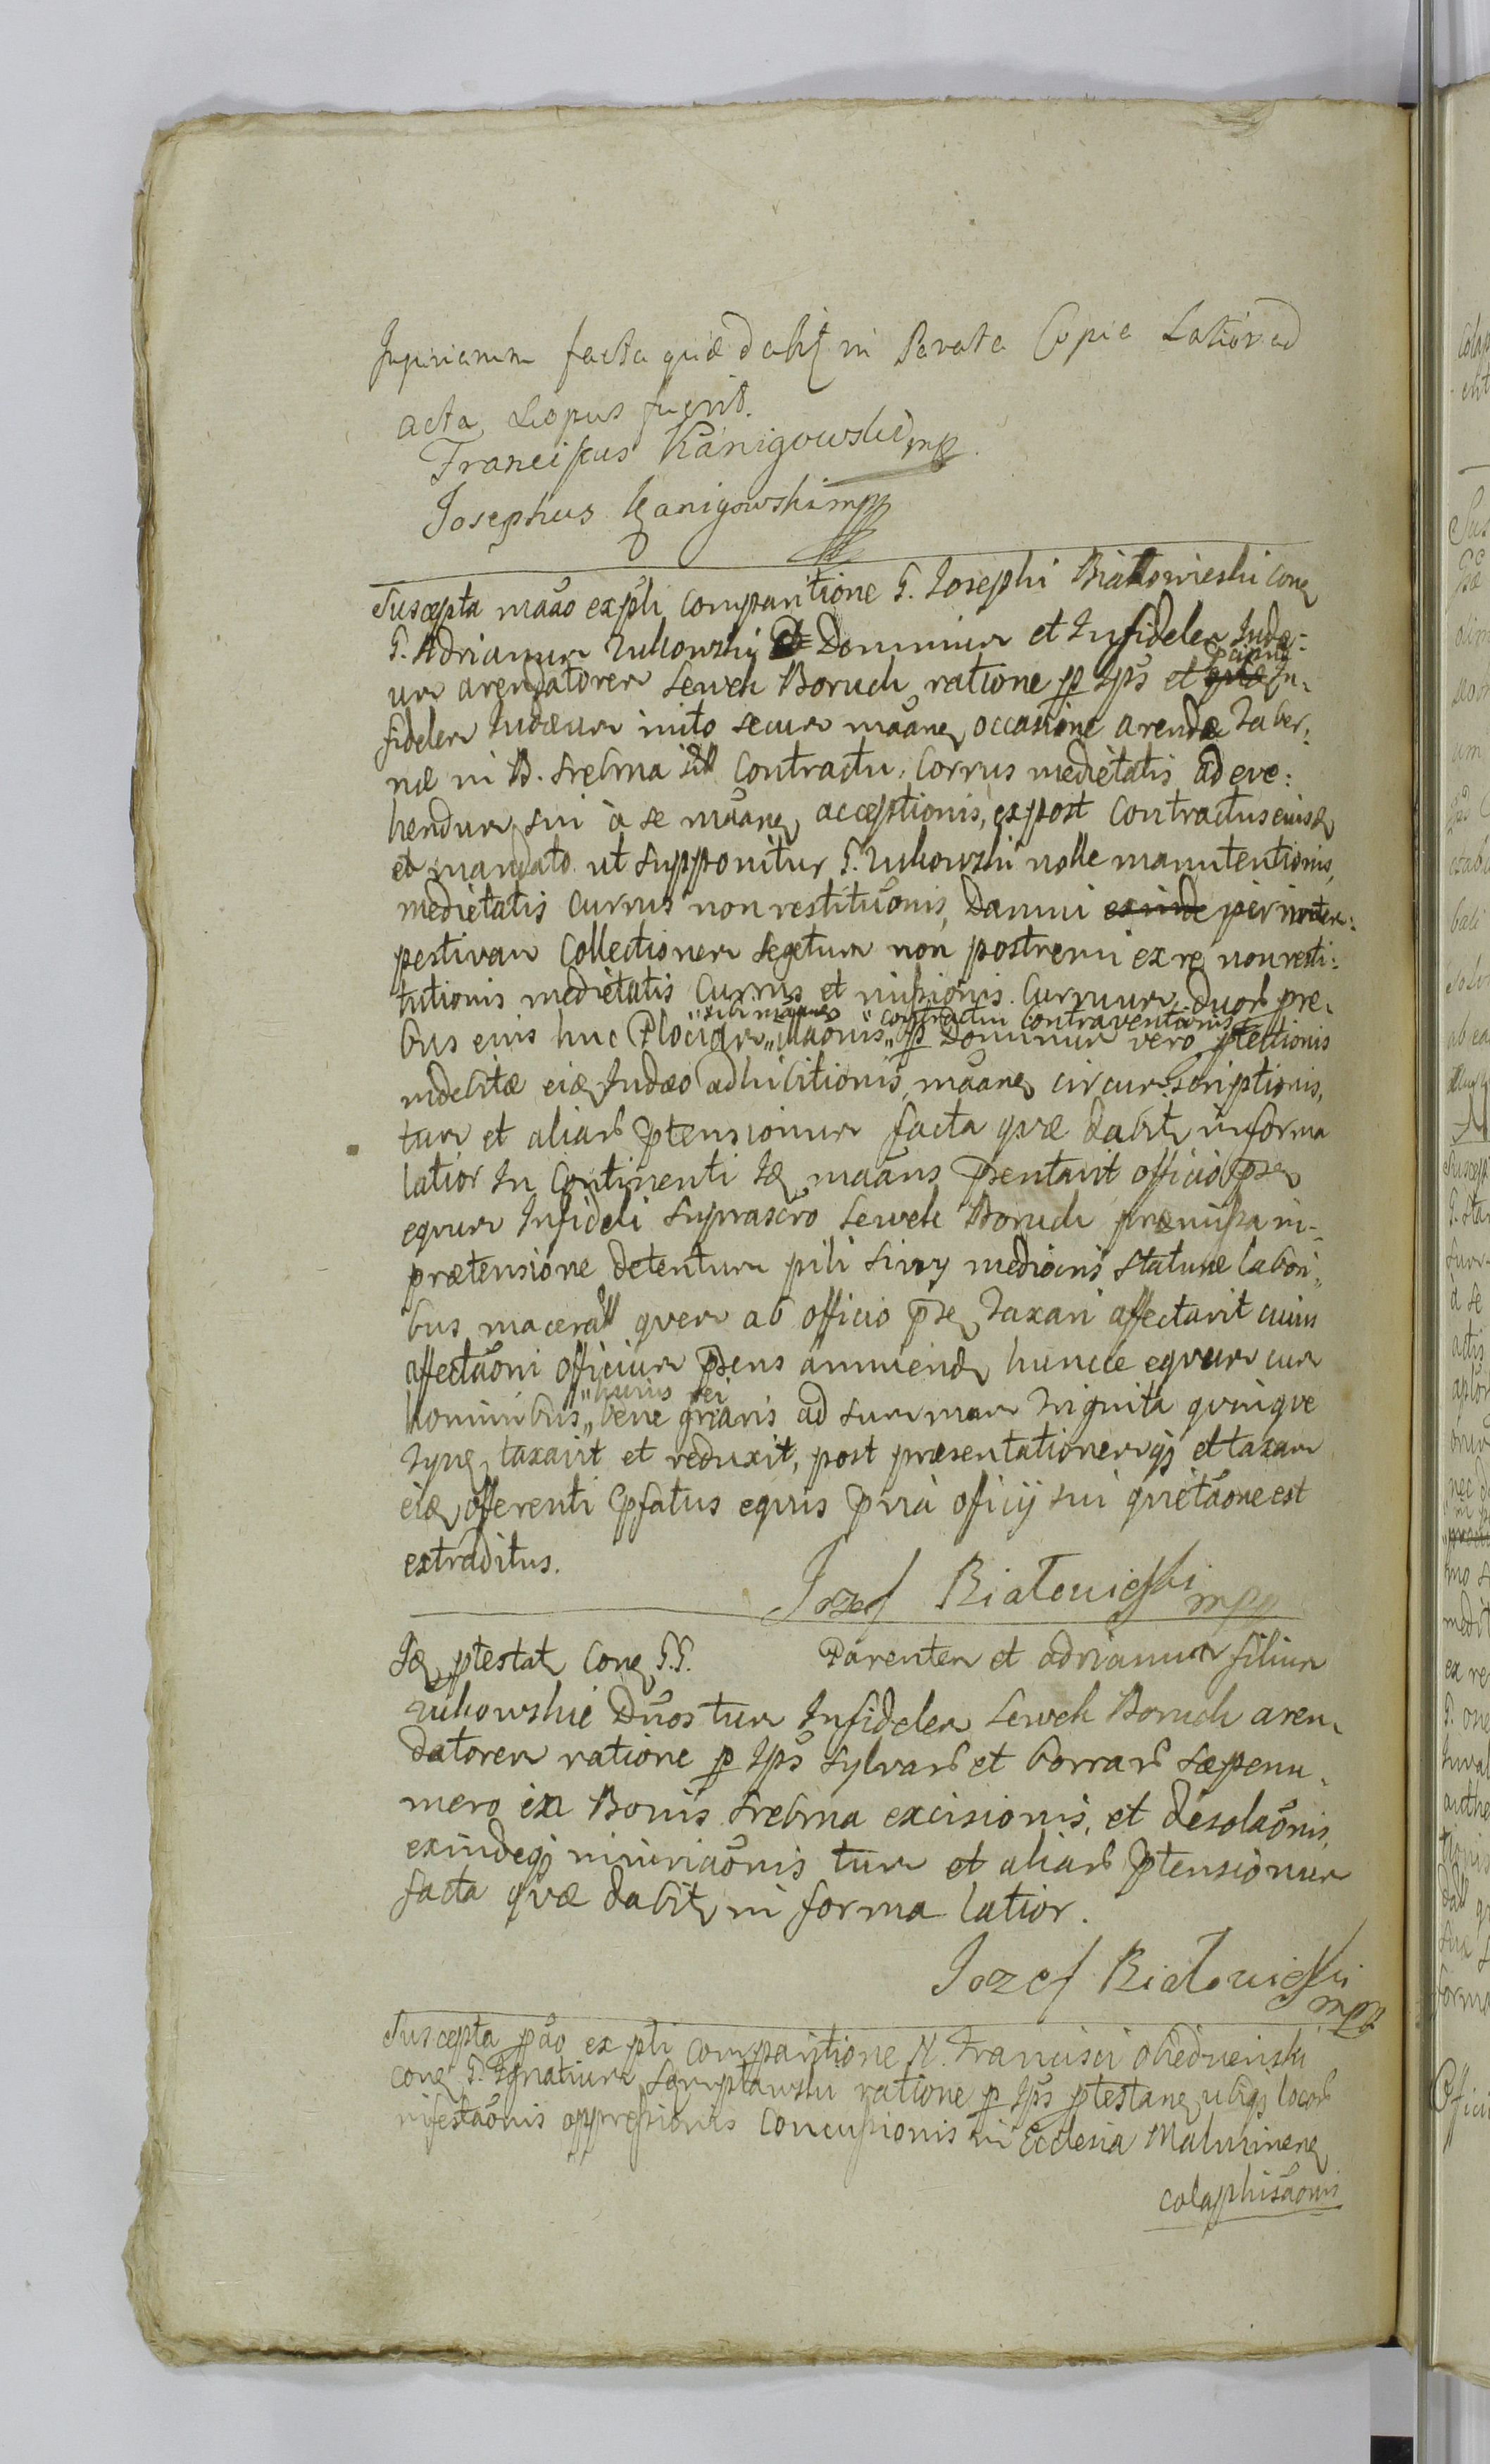 Injuriarum facta quæ dabit in Parata Copia Latior ad
acta si opus fuerit.
Franciscus Kanigowski mp
Josephus Kanigowski mpp
Suscepta mãao expłi comparitione G. Josephi Białowieski con
G. Adrianum Zukowski Dominum et Infidelem Judæ:
um arendatorem Lewek Boruch ratione p Ips et In-
fidelem Judæum inito secum mãane occasione arendæ Taber:
næ in B. Srebrna Contractu, Corrus medietatis ad eve:
hendum sui à se mãane acceptionis, ex post Contractus eiusd
et mandato ut supponitur G. Zukowski nolle manutentionis,
medietatis currus non restituõnis, Damni exinde per intem:
pestivam Collectionem segetum non postremi ex re non resti:
tutionis medietatis Currus et misionis Curruum duor pre-
"sibi mãane" "contractui contraventionis
bus eius huc Plociam "illaõnis" p Dominum vero ptectionis
indebitæ eid Judæo adhibitionis, mãane circumscriptionis,
tum et aliar ptensionum facta quæ dabit in forma
latior In Continenti Id mãans psentavit officio pse
equum Infideli suprascro Lewek Boruch præmissa in-
prætensione detentum pili siwy mediocris staturæ labori,,
bus macerat quem ab officio pse Taxari affectavit cuius
affectaõni officium psens annuend huncce equum cum
"huius rei
hominibus" bene gnaris ad summam Triginta quinque
Tyn taxavit et reduxit, post præsentationemq et taxam
eid offerenti psatus equus pvia oficij sui quietaõne est
extraditus.
Jozef Białowieski mpp
Id ptestat con G.G. Parentem et Adrianum filium
Zukowskie Dños tum Infidelem Lewek Boruch aren-
datorem ratione p Ips sylvar et borrar sæpenu-
mero in Bonis Srebrna excisionis, et desolaõnis,
exindeq iniuriaõnis tum et aliar ptensionum
facta quæ dabit in forma latior.
Jozef Białowieski
mpp
Suscepta pão ex pli comparitione N. Francisci
con G. Ignatium ratione p Ips ptestan ubiq locor
infestaõnis oppressionis Concussionis in Ecclesia
colaphisaõnis